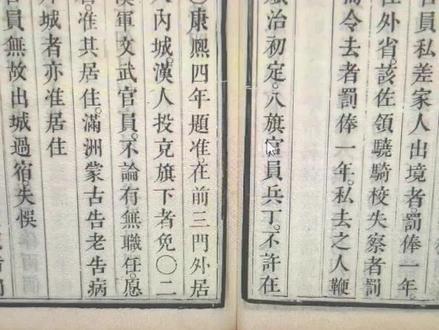 官員私差家人出境者罰俸一年。
在外省。該佐領驍騎校失察者罰
而令去者罰俸一年。私去之人鞭
治初定。八旗官員兵丁。不許在
○康熙四年題准在前三門外居
內城。漢人投充旗下者免○二
漢軍文武官員。不論有無職任。愿
准其居住。滿洲蒙古告老告病
外城者亦准居住
官員無故出城過宿失悞